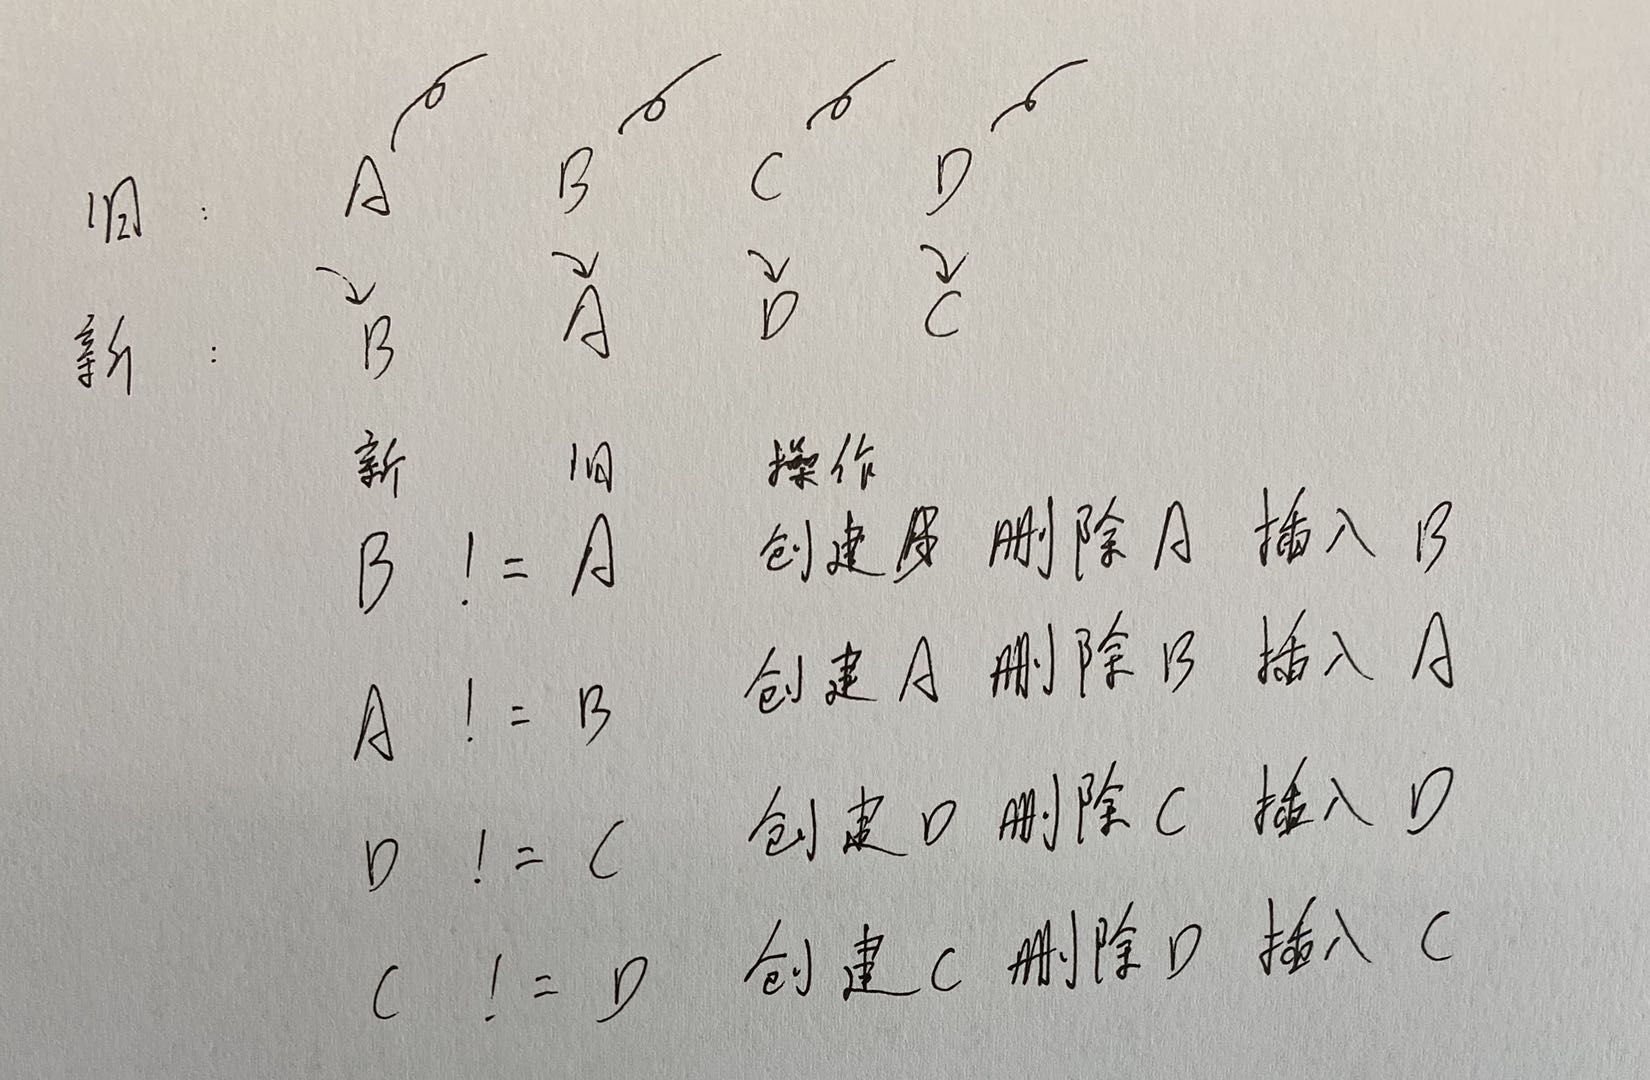 旧: A B C D
新: B A D C
新 旧 操作
B != A 创建B 删除A 插入B
A != B 创建A 删除B 插入A
D != C 创建D 删除C 插入D
C != D 创建C 删除D 插入C